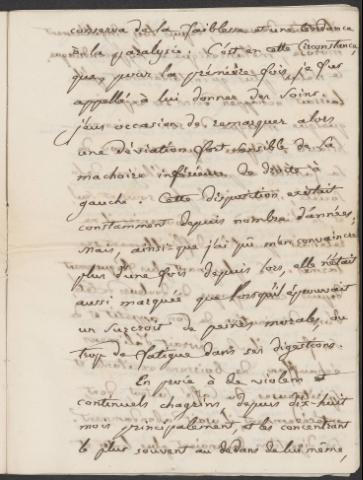 conserva de la faiblesse et une tendance
à la paralysie. C'est en cette circonstance,
que, pour la première fois, je fus
appellé à lui donner des soins.
j'eus occasion de remarquer alors
une déviation fort sensible de la
machoire inférieure de droite à
gauche. Cette disposition existait
constamment depuis nombre d'années,
mais, ainsi que j'ai pu m'en convaincre
plus d'une fois depuis lors, elle n'était
aussi marquée que lorsqu'il éprouvait
un surcroit de peines morales, ou
trop de fatigue dans ses digestions.
En proie à de violens et
continuels chagrins, depuis dix-huit
mois principalement, et les concentrant
le plus souvent au dedans de lui même,